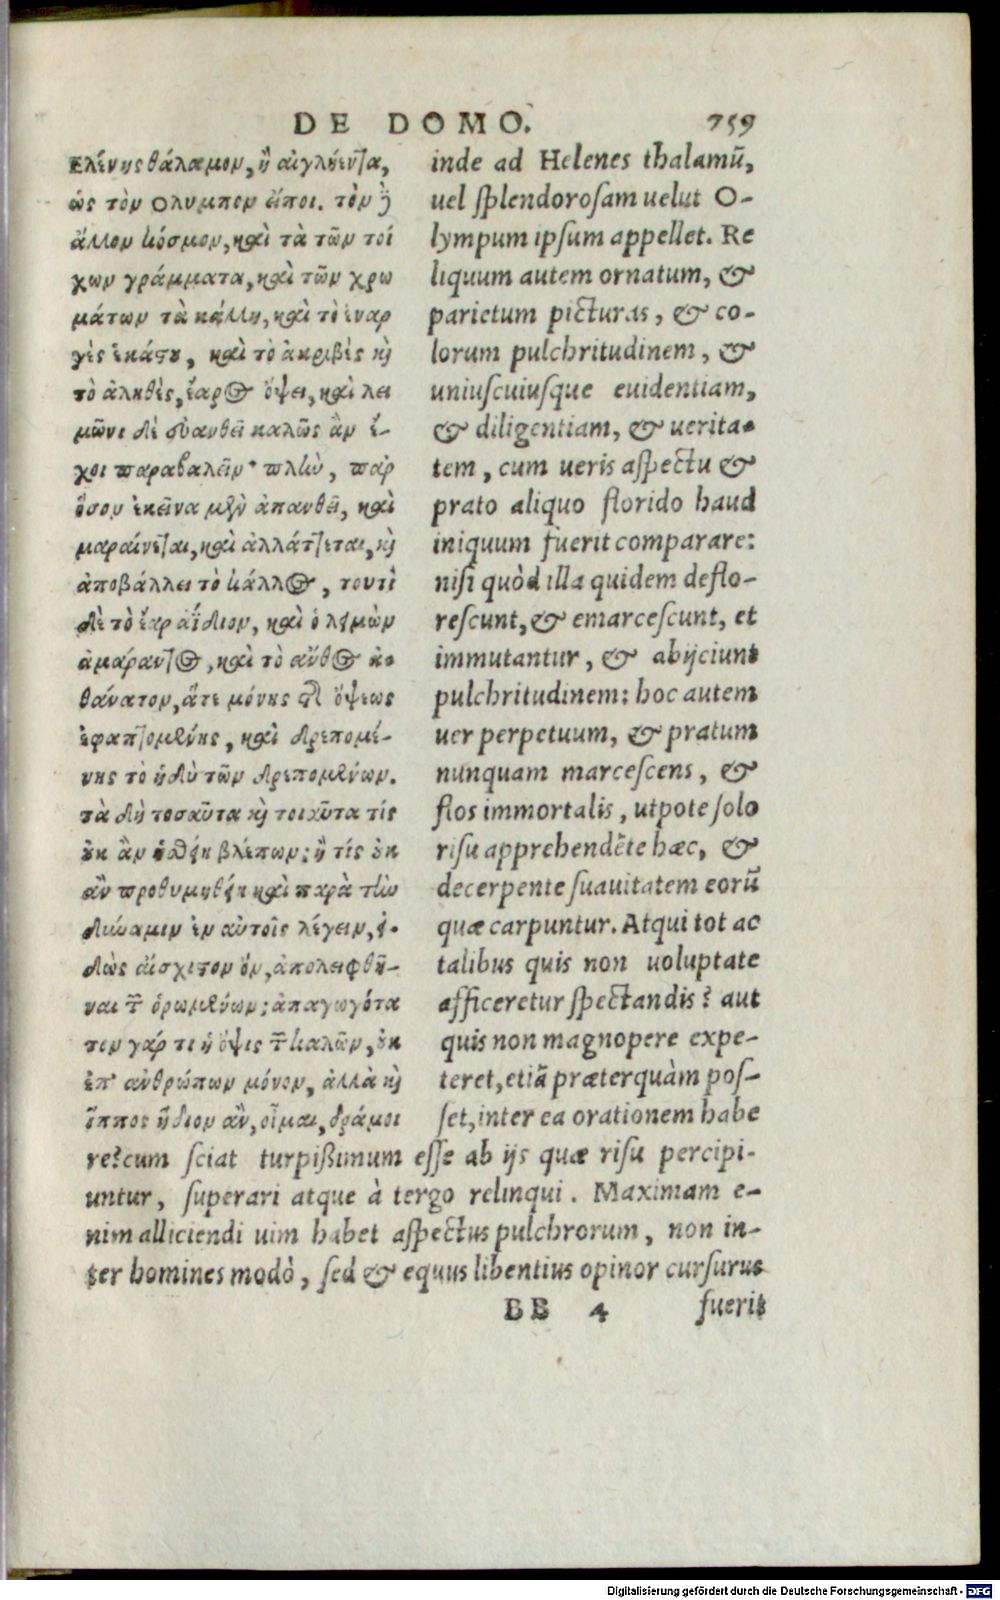 DE DOMO. 759
Ελένης θάλαμον, ἢ αἰγλήεντα,
ὡς τὸν Ολυμπον εἴποι. τὸν δὲ
ἄλλον κόσμον, καὶ τὰ τῶν τοί
χων γράμματα, καὶ τῶν χρω
μάτων τὰ κάλλη, καὶ τὸ ἐναρ
γὲς ἑκάστου, καὶ τὸ ἀκριβὲς καὶ
τὸ ἀληθὲς, ἔαρος ὄψει, καὶ λει
μῶνι δὲ εὐανθεῖ καλῶς ἂν ἔ-
χοι παραβαλεῖν· πλὴν, παρ
ὅσον ἐκεῖνα μὲν ἀπανθεῖ, καὶ
μαραίνεται, καὶ ἀλλάττεται, καὶ
ἀποβάλλει τὸ κάλλος, τουτὶ
δὲ τὸ ἔαρ ἀΐδιον, καὶ ὁ λειμὼν
ἀμάραντος, καὶ τὸ ἄνθος ἀ-
θάνατον, ἅτε μόνης τῆς ὄψεως
ἐφαπτομένης, καὶ δρεπομέ-
νης τὸ ἡδὺ τῶν δρεπομένων.
τὰ δὴ τοσαῦτα καὶ τοιαῦτα τίς
οὐκ ἂν ἡσθείη βλέπων; ἢ τίς οὐκ
ἂν προθυμηθείη καὶ παρὰ τὴν
δύναμιν ἐν αὐτοῖς λέγειν, εἰ-
δὼς αἴσχιστον ὂν, ἀπολειφθῆ-
ναι τῶν ὁρωμένων; ἀπαγωγότα
τον γάρ τι ἡ ὄψις τῶν καλῶν, οὐκ
ἐπ' ἀνθρώπων μόνον, ἀλλὰ καὶ
ἵππος ἥδιον ἂν, οἶμαι, δράμοι
inde ad Helenes thalamū,
uel splendorosam uelut O-
lympum ipsum appellet. Re
liquum autem ornatum, &
parietum picturas, & co-
lorum pulchritudinem, &
uniuscuiusque euidentiam,
& diligentiam, & uerita-
tem, cum ueris aspectu &
prato aliquo florido haud
iniquum fuerit comparare:
nisi quòd illa quidem deflo-
rescunt, & emarcescunt, et
immutantur, & abijciunt
pulchritudinem: hoc autem
uer perpetuum, & pratum
nunquam marcescens, &
flos immortalis, utpote solo
risu apprehendēte hæc, &
decerpente suauitatem eorū
quæ carpuntur. Atqui tot ac
talibus quis non uoluptate
afficeretur spectandis? aut
quis non magnopere expe-
teret, etiā præterquàm pos-
set, inter ea orationem habe
re? cum sciat turpißimum esse ab ijs quæ risu percipi-
untur, superari atque à tergo relinqui. Maximam e-
nim alliciendi uim habet aspectus pulchrorum, non in-
ter homines modò, sed & equus libentius opinor cursurus
BB 4 fuerit
Digitalisierung gefördert durch die Deutsche Forschungsgemeinschaft - DFG